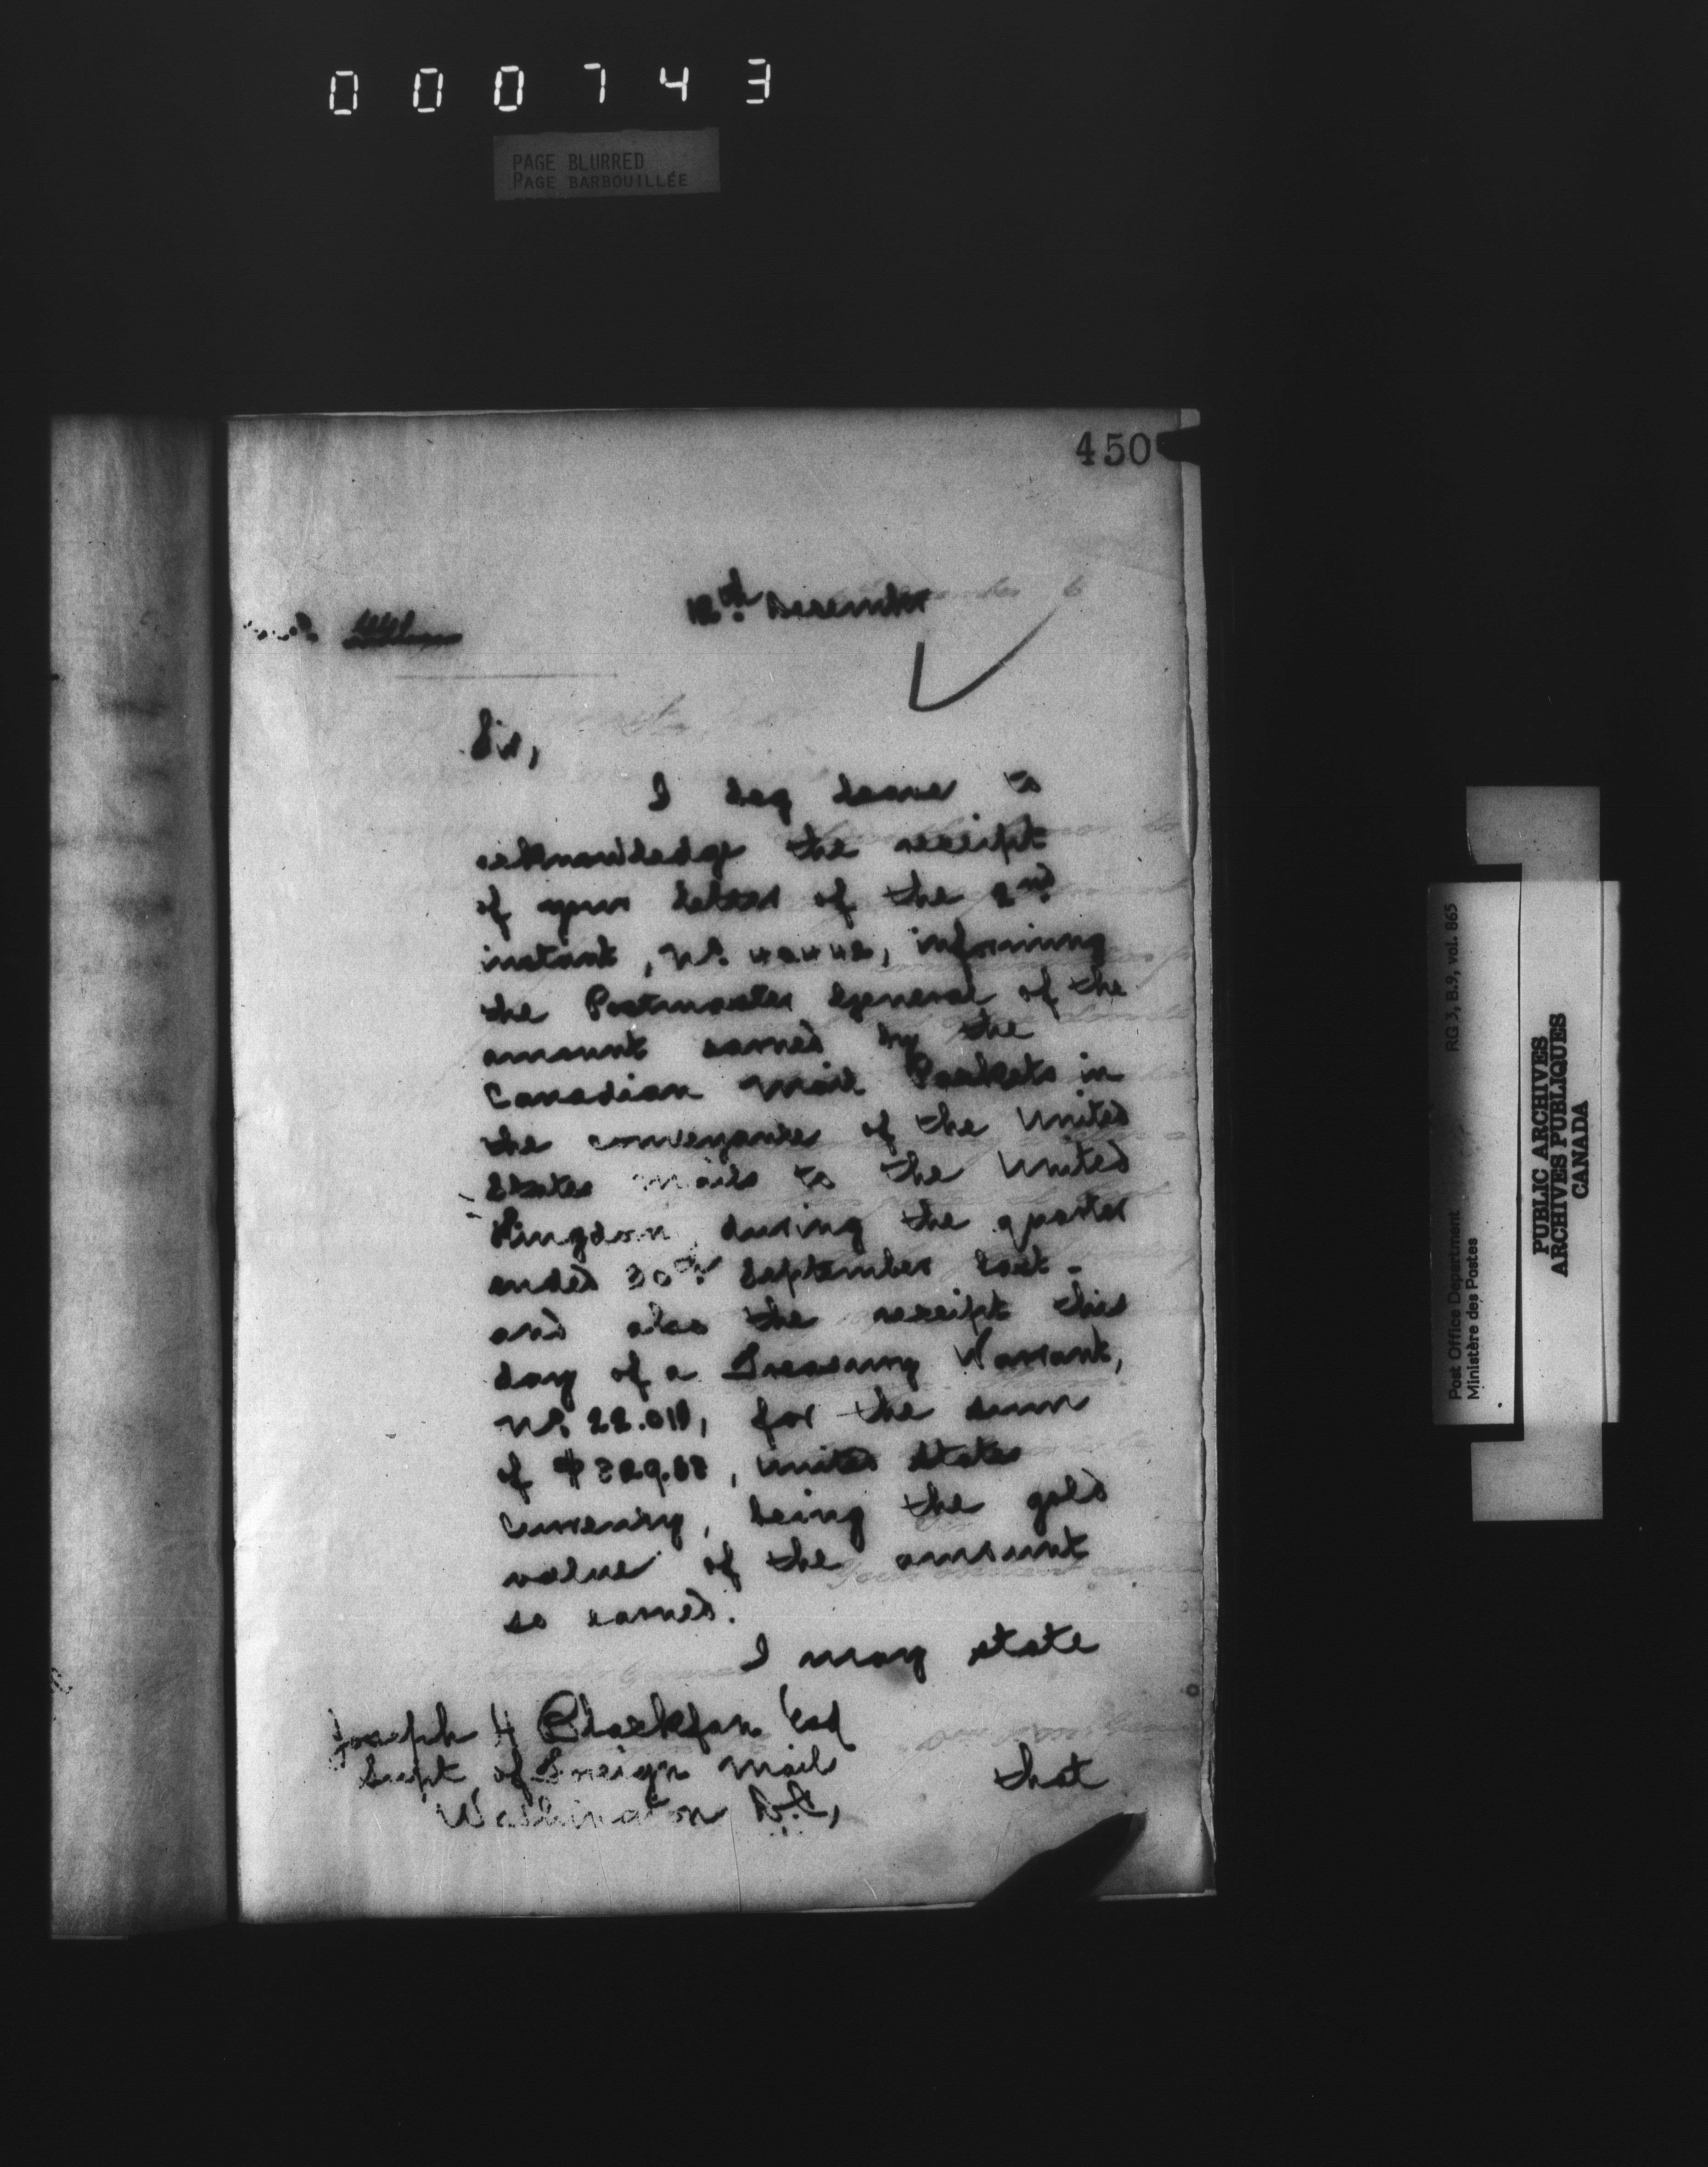 000743
PAGE BLURRED
PAGE BARBOUILLÉE
450
12th. December
Sir,
I beg leave to
acknowledge the receipt
of your letter of the 2nd
instant, No. informing
the Postmaster General of the
amount earned by the
Canadian Mail Packets in
the conveyance of the United
States Mails to the United
Kingdom during the quarter
ended 30th September last -
and also the receipt this
day of a Treasury Warrant,
No. for the sum
of $ United States
Currency, being the gold
value of the amount
so earned.
I may state
Joseph H Blackfan Esq
Supt of Foreign Mails
Washington D.C,
that
Post Office Department
Ministère des Postes
RG 3, B.9, vol. 865
PUBLIC ARCHIVES
ARCHIVES PUBLIQUES
CANADA